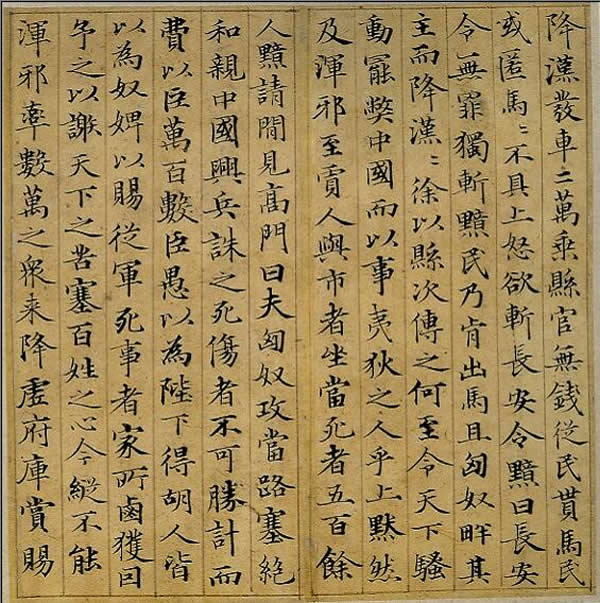 降漢發車二萬乘縣官無錢從民貰馬民
或匿馬〻不具上怒欲斬長安令黯曰長安
令無罪獨斬黯民乃肯出馬且匈奴畔其
主而降漢〻徐以縣次傳之何至令天下騷
動罷弊中國而以事夷狄之人乎上黙然
及渾邪至賈人與市者坐當死者五百餘
人黯請閒見髙門曰夫匈奴攻當路塞絕
和親中國興兵誅之死傷者不可勝計而
費以巨萬百數臣愚以為陛下得胡人皆
以為奴婢以賜從軍死事者家所鹵獲因
予之以謝天下之苦塞百姓之心今縱不能
渾邪率數萬之衆来降虛府庫賞賜